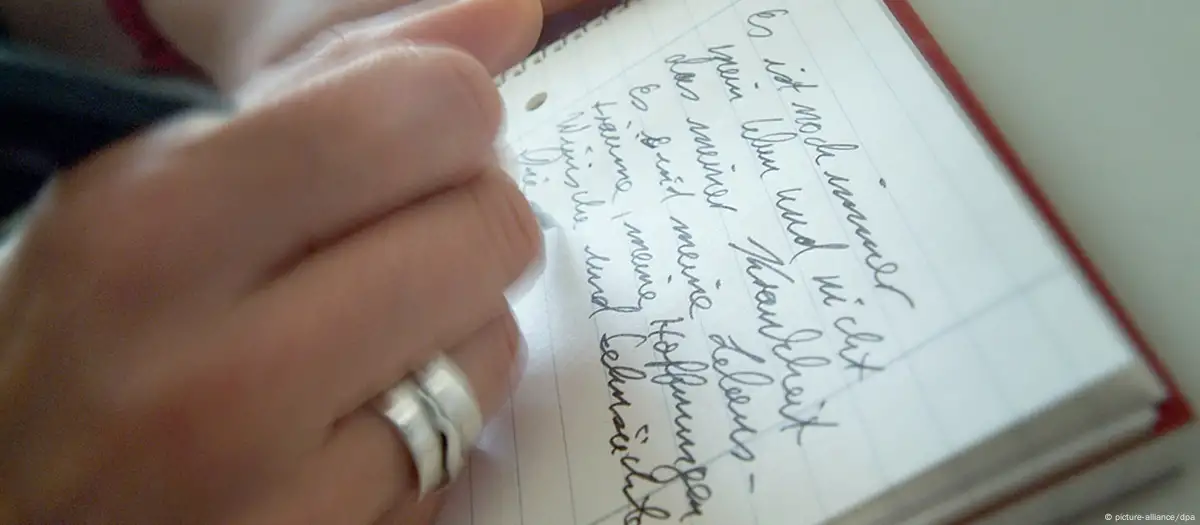 Es ist noch immer
mein Leben und nicht
das meiner Krankheit
Es sind meine Lebens-
träume, meine Hoffnungen
Wünsche und Sehnsüchte
Die
© picture-alliance/dpa